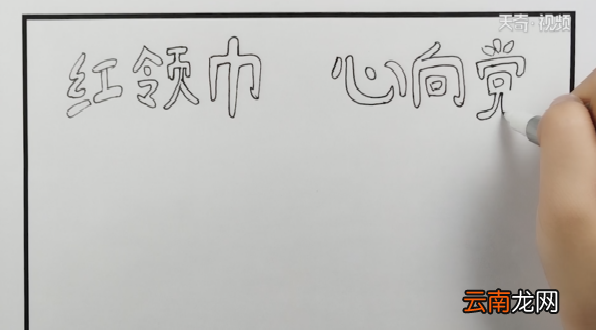 天奇·视频
红领巾 心向党
云南龙网